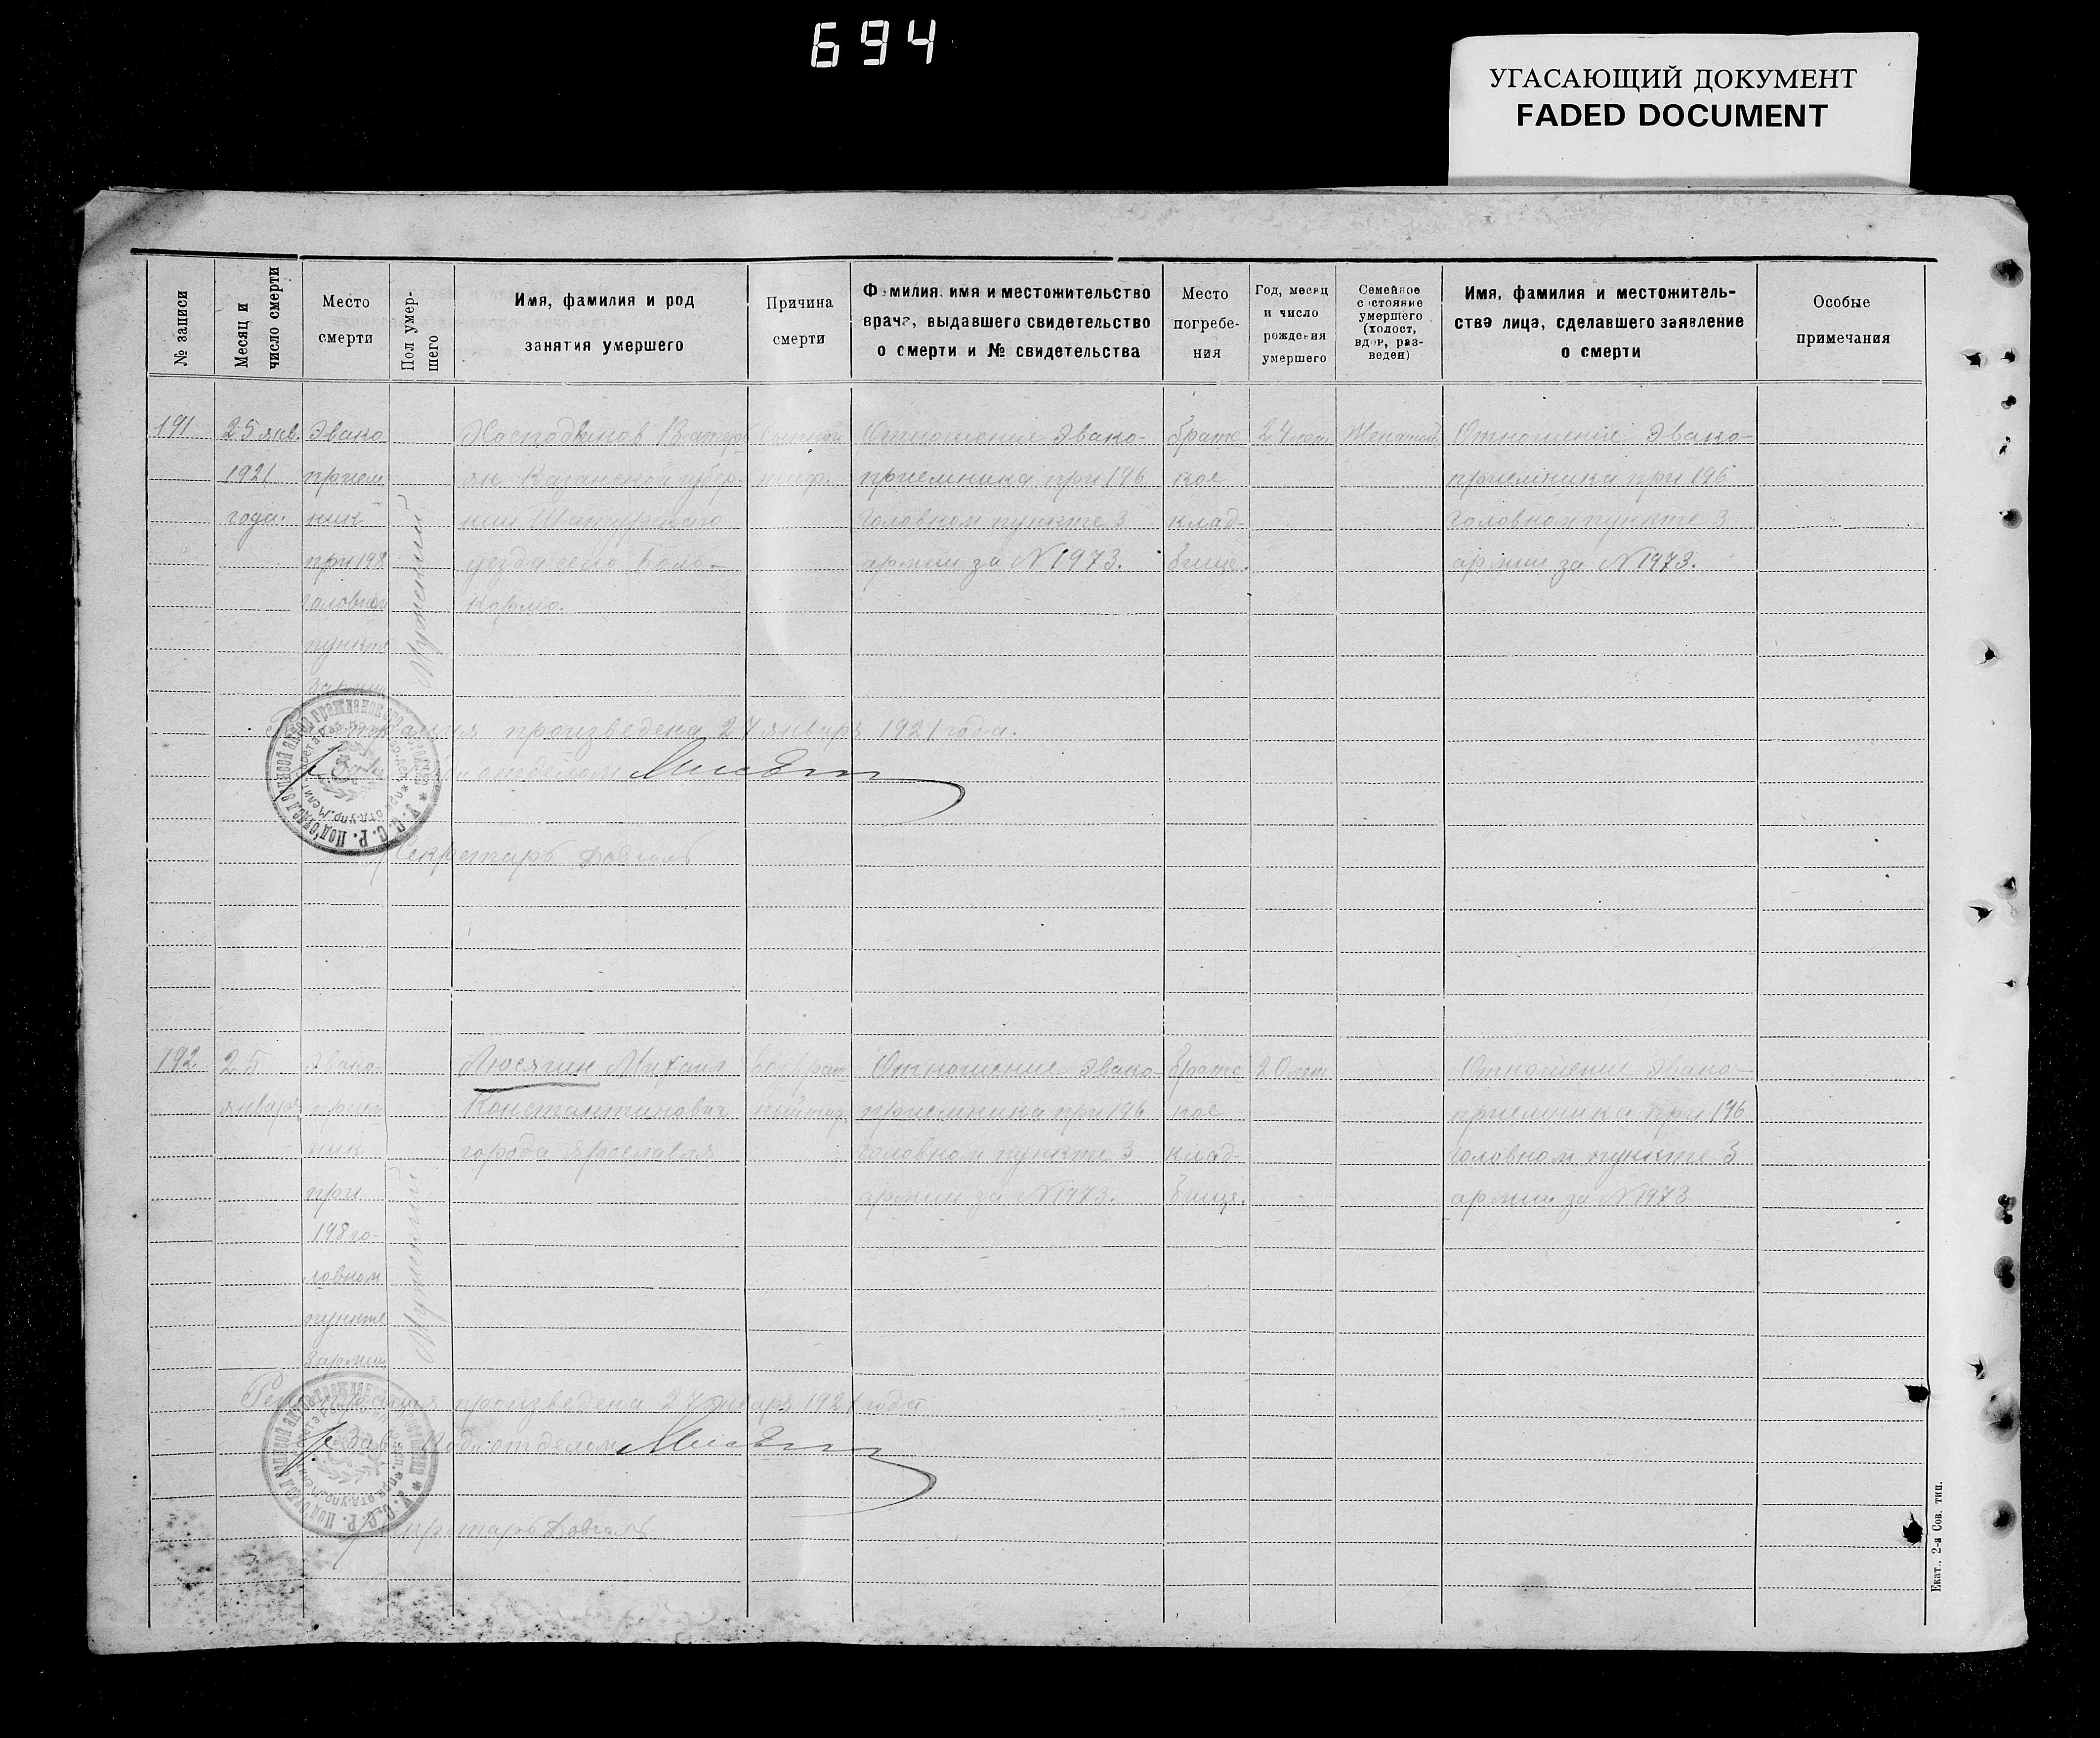 694
УГАСАЮЩИЙ ДОКУМЕНТ
FADED DOCUMENT
№ записи
Месяц и
число смерти
Место
смерти
Пол умер-
шего
Имя, фамилия и род
занятия умершего
Причина
смерти
Фамилия, имя и местожительство
врача, выдавшего свидетельство
о смерти и № свидетельства
Место
погребе-
ния
Год, месяц
и число
рождения
умершего
Семейное
состояние
умершего
(холост,
вдов, раз-
веден)
Имя, фамилия и местожитель-
ство лица, сделавшего заявление
о смерти
Особые
примечания
191
25 янв.
1921
года.
Эвако
прием
ник
при 198
головном
пункте
3 армии
Мужской
ян Казанской губер-
нии
уезда село
тиф.
Отношение Эвако-
приемника при 196
головном пункте 3
армии за N 1973.
Братс
кое
клад-
бище.
24 лет
Женатый
Отношение Эвако-
приемника при 196
головном пункте 3
армии за N 1973.
Регистрация произведена 27 января 1921 года.
подотделом
Секретарь
192
25
января
Эвако-
прием
ник
при
198 го-
ловном
пункте
3 армии
Мужской
Люсягин Михаил
Константинович
города Ярославля
возврат
ный тиф.
Отношение Эвако-
приемника при 196
головном пункте 3
армии за N 1973.
Братс
кое
клад-
бище.
20 лет
Отношение Эвако-
приемника при 196
головном пункте 3
армии за N 1973
Регистрация произведена 27 января 1921 года
Зав. Подотделом
Секретарь
Екат., 2-я Сов. тип.